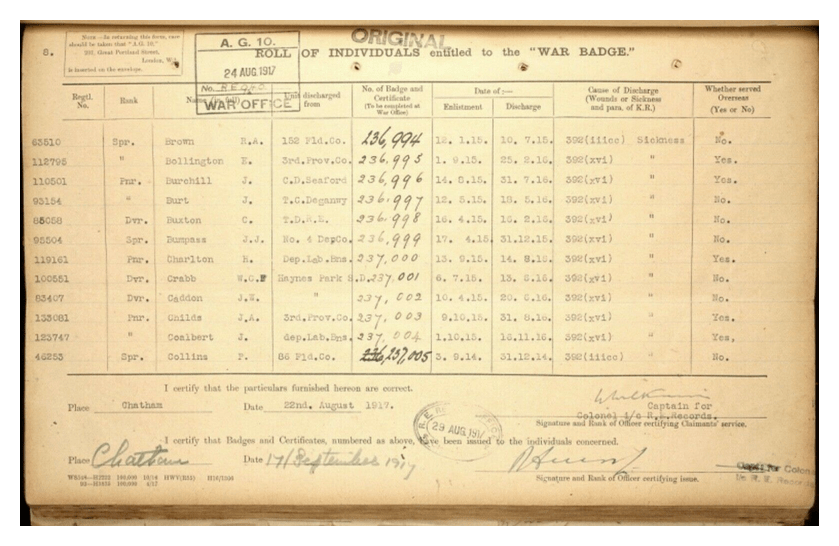 8.
NOTE.—In returning this form, care
should be taken that "A.G. 10,"
291, Great Portland Street,
London, W.,
is inserted on the envelope.
A. G. 10.
24 AUG 1917
No.
WAR OFFICE
ORIGINAL
ROLL OF INDIVIDUALS entitled to the "WAR BADGE."
Regtl. No. Rank Name Unit discharged from No. of Badge and Certificate (To be completed at War Office) Date of :— Enlistment Discharge Cause of Discharge (Wounds or Sickness and para. of K.R.) Whether served Overseas (Yes or No)
63510 Spr. Brown R.A. 152 Fld.Co. 236,994 12. 1.15. 10. 7.15. 392(iiicc) Sickness No.
112795 " Bollington E. 3rd.Prov.Co. 236,995 1. 9.15. 25. 2.16. 392(xvi) " Yes.
110501 Pnr. Burchill J. C.D.Seaford 236,996 14. 8.15. 31. 7.16. 392(xvi) " Yes.
93154 " Burt J. T.C.Deganwy 236,997 12. 5.15. 19. 5.16. 392(xvi) " No.
85058 Dvr. Buxton C. T.D.R.E. 236,998 16. 4.15. 15. 2.16. 392(xvi) " No.
95504 Spr. Bumpass J.J. No. 4 DepCo. 236,999 17. 4.15. 31.12.15. 392(xvi) " No.
119161 Pnr. Charlton R. Dep.Lab.Bns. 237,000 13. 9.15. 14. 8.15. 392(xvi) " Yes.
100551 Dvr. Crabb W.G.F Haynes Park S.D. 237,001 6. 7.15. 13. 5.16. 392(xvi) " No.
83407 Dvr. Caddon J.W. " 237,002 10. 4.15. 20. 6.16. 392(xvi) " No.
133081 Pnr. Childs J.A. 3rd.Prov.Co. 237,003 9.10.15. 31. 8.16. 392(xvi) " Yes.
123747 " Coalbert J. dep.Lab.Bns. 237,004 1.10.15. 16.11.16. 392(xvi) " Yes,
46253 Spr. Collins P. 86 Fld.Co. 237,005 3. 9.14. 31.12.14. 392(iiicc) " No.
I certify that the particulars furnished hereon are correct.
Place Chatham Date 22nd. August 1917.
Captain for
Colonel i/c R.E.Records.
Signature and Rank of Officer certifying Claimants' service.
29 AUG 1917
I certify that Badges and Certificates, numbered as above, have been issued to the individuals concerned.
Place Chatham Date 17/September 1917
Capt. for Colonel
i/c R. E. Records
Signature and Rank of Officer certifying issue.